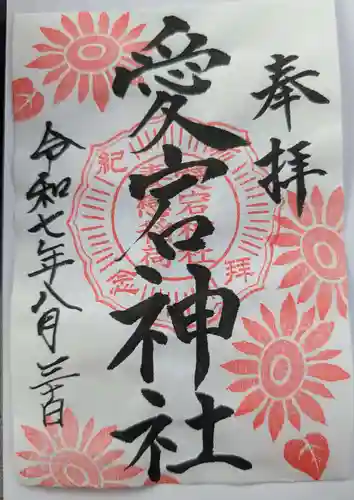 奉拝
愛宕神社
令和七年八月三十日
紀
念
拝